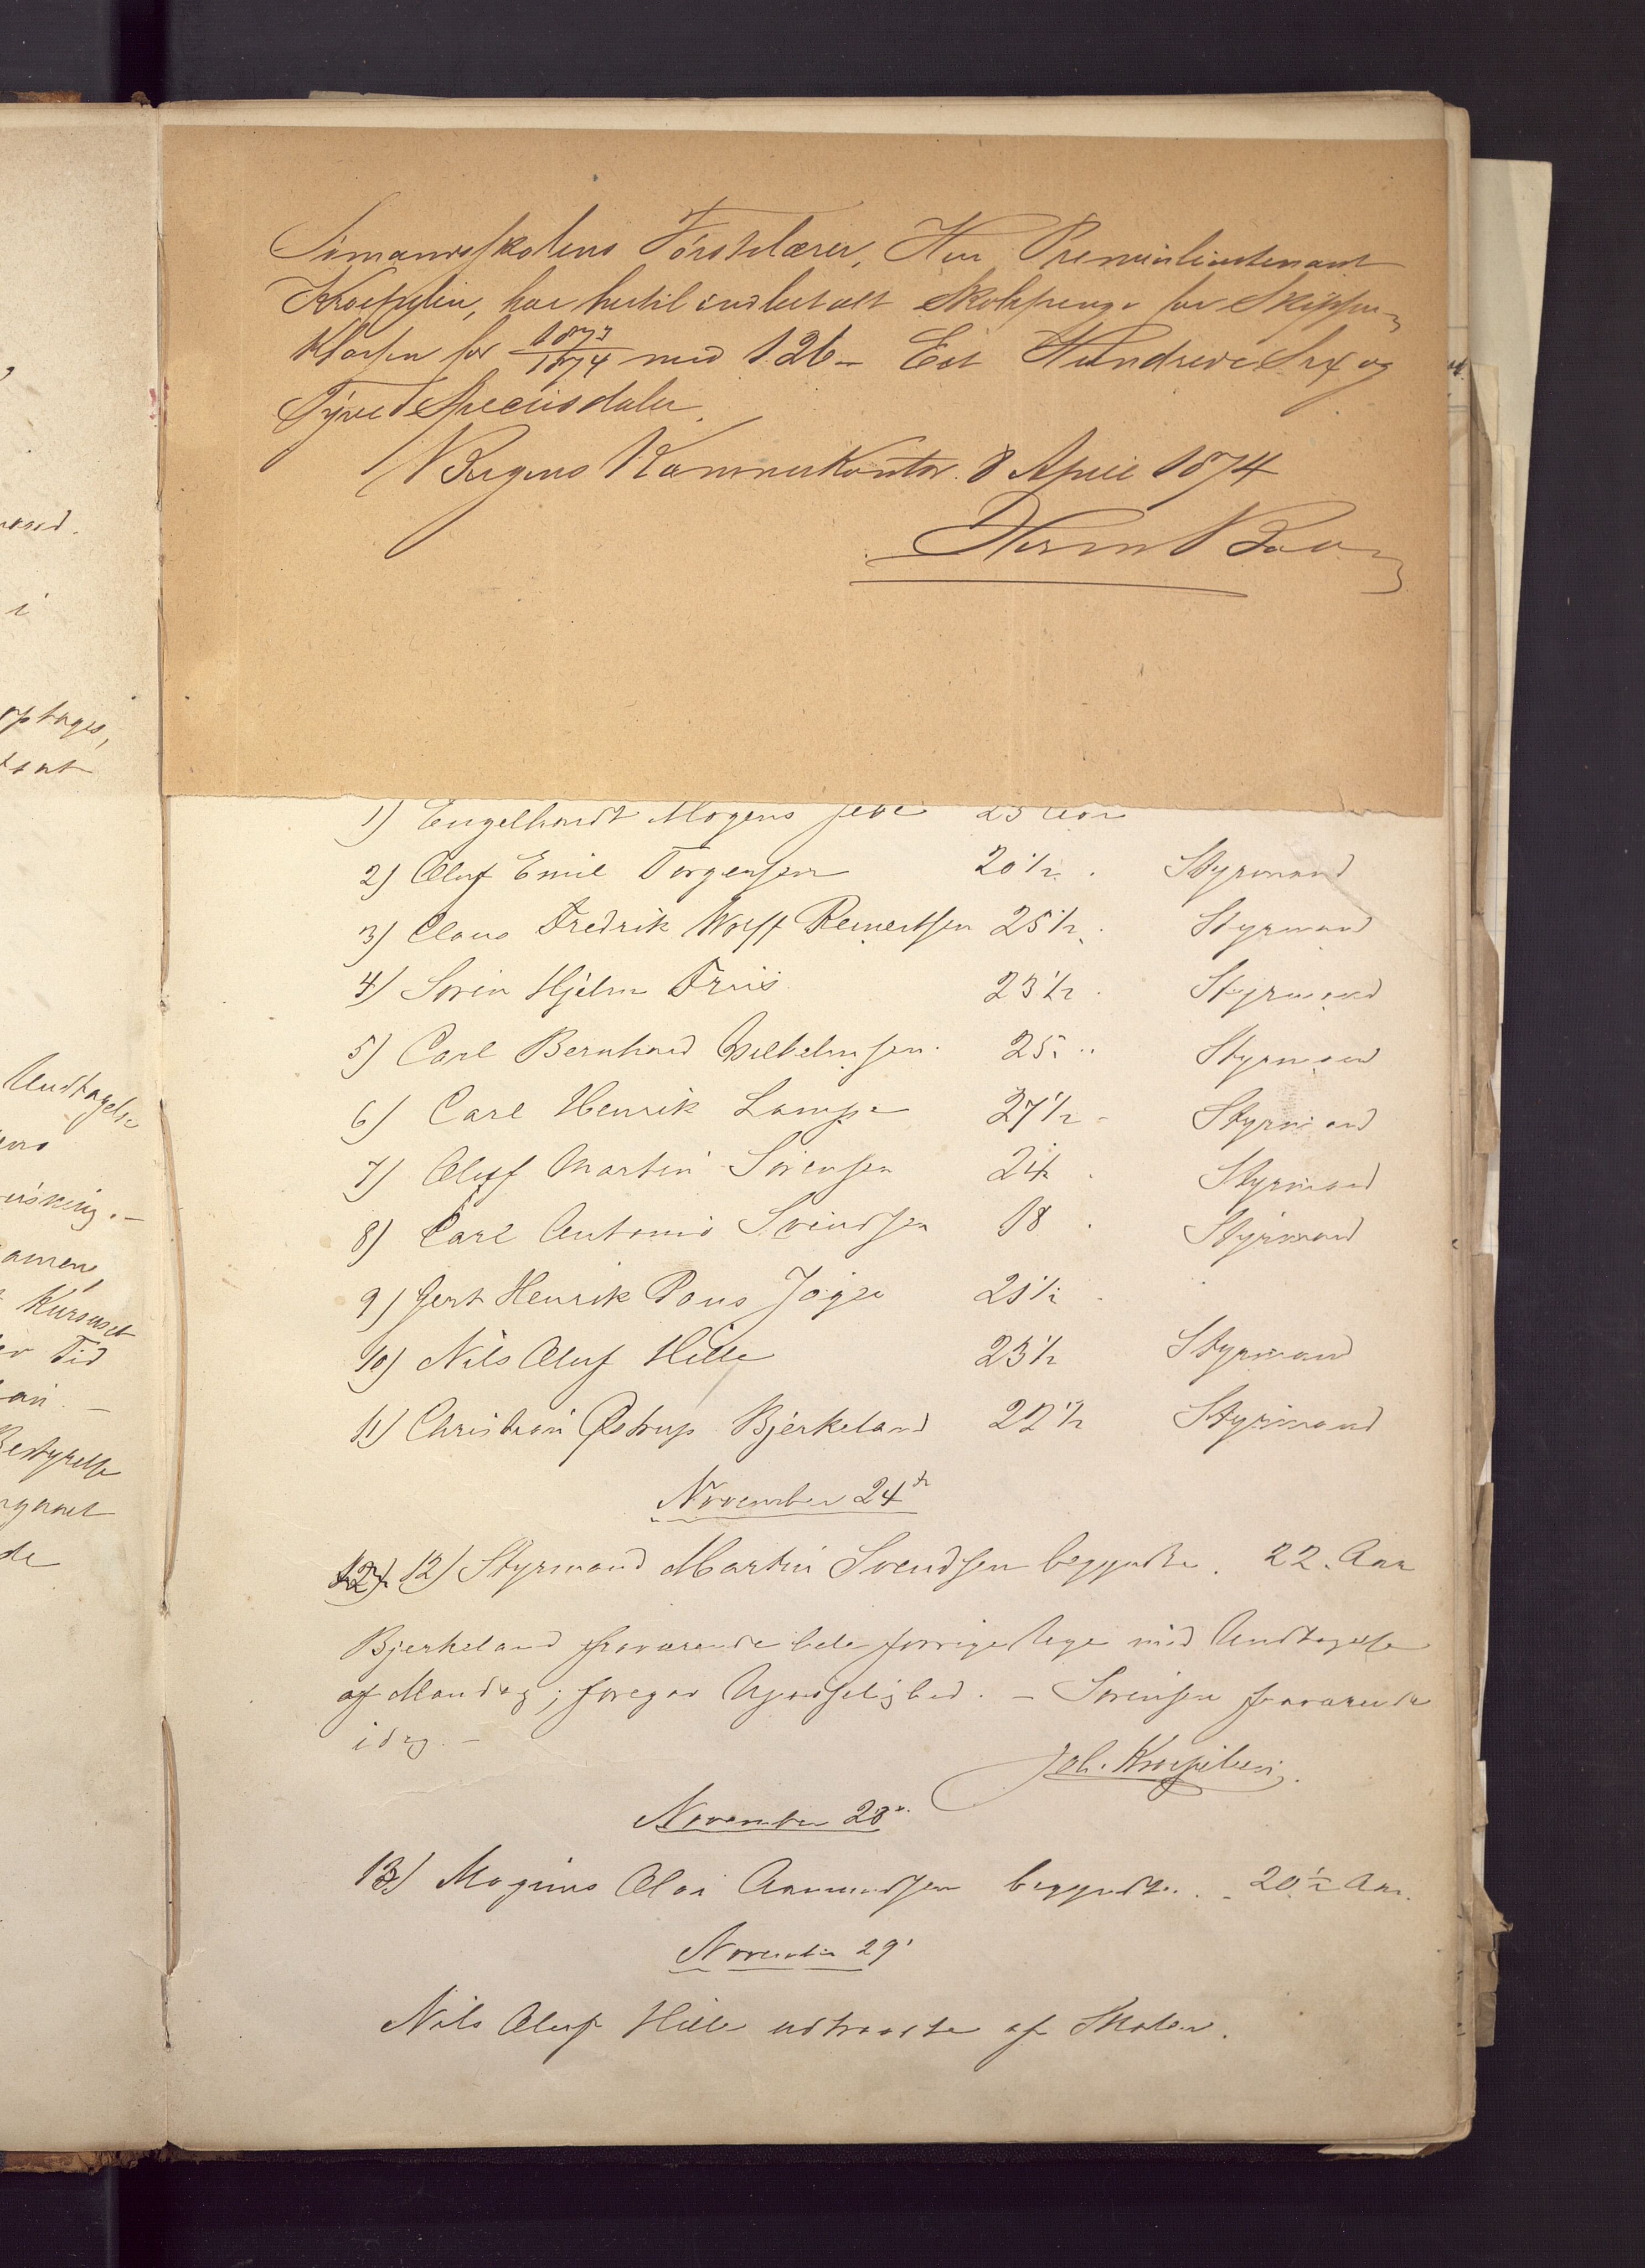 Sømandsskolens Førstelærer, Herr Premierlieutenant
Kroepelien, har hertil indbetalt Skolepenge for Skipper-
Klassen for 1873/1874 med 126 – Eet Hundrede Sex og
Tyve Speciesdaler.
Bergens Kæmnerkontor 8 April 1874
Herm
1) Engelhardt Mogens 25 Aar
2) Oluf Emil Torgersen 20 1/2 . Styrmand
3) Claus Fredrik Wolff Reinertsen 25 1/2 . Styrmand
4) Søren Hjelm Friis 23 1/2 . Styrmand
5) Carl Bernhard Wilhelmsen. 25 .. Styrmand
6) Carl Henrik Lampe 27 1/2 - Styrmand
7) Oluf Martin Sørensen . Styrmand
8) Carl Antonio Svendsen 18 . Styrmand
9) Gert Henrik Pous Jæger 21 1/2 .
10) Nils Oluf Hille 23 1/2 Styrmand
11) Christian Østrup Bjerkeland 22 1/2 Styrmand
November 24de
12) Styrmand Martin Svendsen begyndte. 22. Aar
Bjerkeland fraværende hele forrige Uge med Undtagelse
af Mandag; foregav Upasselighed. – Sørensen fraværende
idag. –
Joh. Kroepelien.
November 28.
13) Mogens Olai Aamundsen begyndte. - 20 1/2 Aar.
November 29'
Nils Oluf Hille udtraadte af Skolen.
mand.
i
optages,
Undtagelse
amen,
Kursuset
Tid
Bestyrelse
de